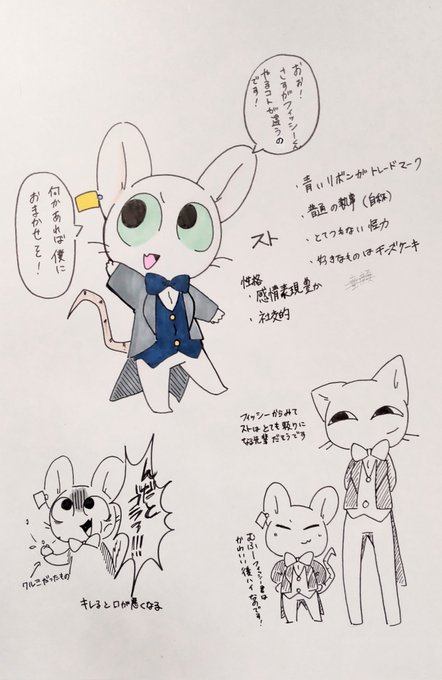 おぉ!
さすがフィッシーくん
やるコトが違うの
です!
何かあれば僕に
おまかせを!
・青いリボンがトレードマーク
・普通の執事(自称)
・とてつもない怪力
・好きなものはチーズケーキ
スト
性格
・感情表現豊か
・社交的
フィッシーからみて
ストはとても頼りに
なる先輩だそうです
んだと
ゴラァ!!!
クルミだったもの
キレると口が悪くなる
むふー!フィッシーくんは
かわいい後ハイ
なのです!